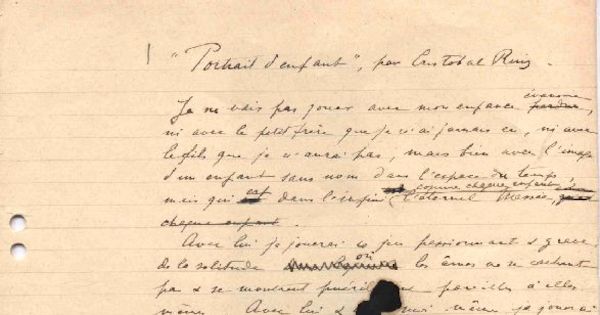 "Portrait d'enfant", par Cristobal Ruiz.
évanouie
Je ne vais pas jouer avec mon enfance perdue,
ni avec le petit frère que je n'ai jamais eu, ni avec
le fils que je n'aurai pas, mais bien avec l'image
d'un enfant sans nom dans l'espace du temps,
est, comme chaque enfant,
mais qui est dans l'infini l'éternel Messie,
chaque enfant.
Avec lui je jouerai ce jeu passionnant & grave
de la solitude où les âmes ne se cachent
pas & se montrent pareilles à elles
mêmes. Avec lui & même je jouerai